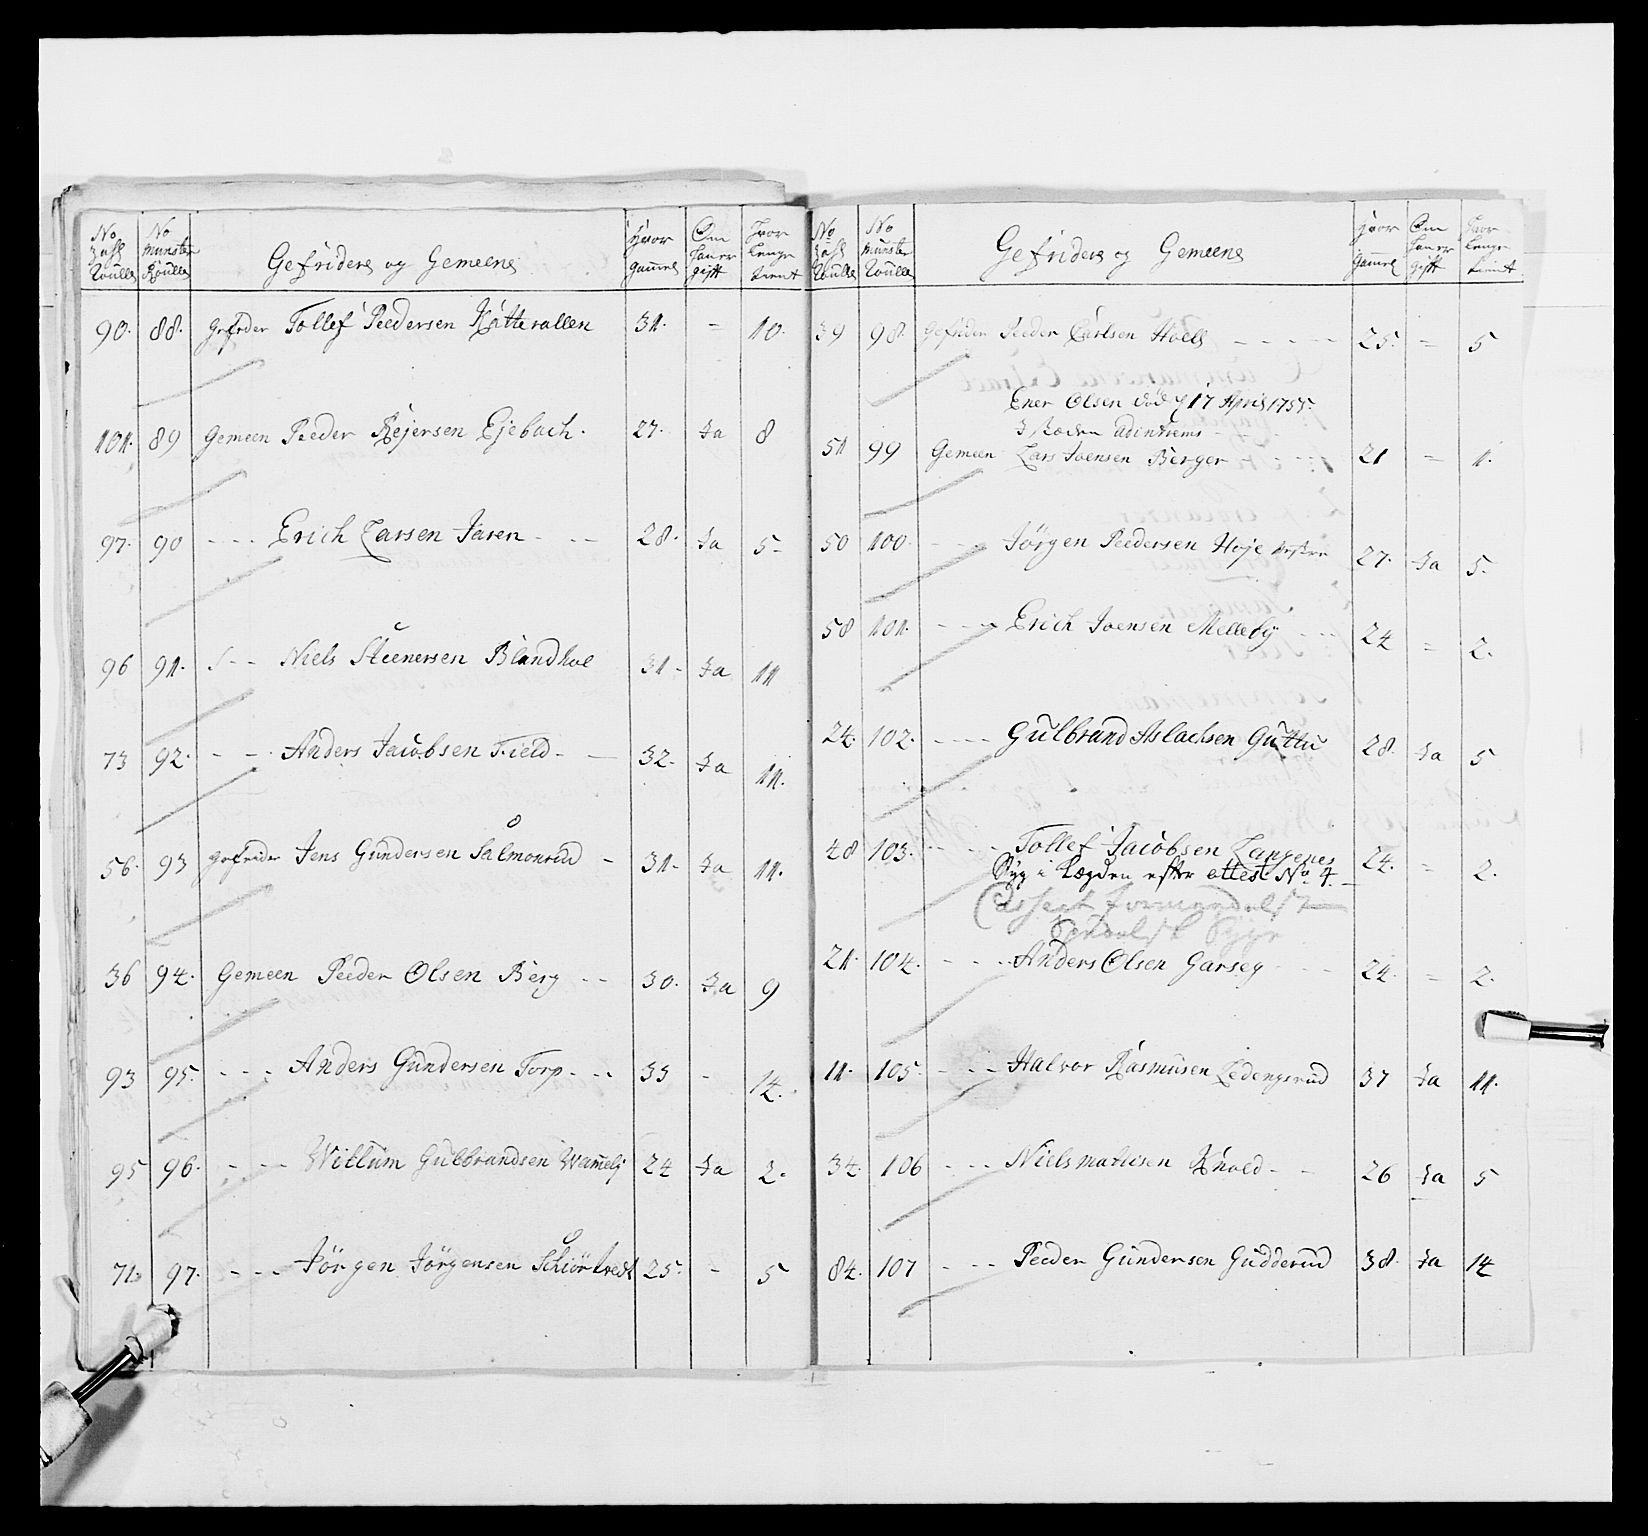 No No Hvor Om Hvor
munster hand er Lenge
Roulle Roulle Gefridere og Gemeene gammel gift tient
90. 88. Gefrider Tollef Peedersen Kattevallen 31. - 10.
101. 89 Gemeen Peeder Rejersen Ejebach. 27. Ja 8
97. 90 - - - Erich Larsen Jaren - - - 28. Ja 5-
96 91. - - Niels Steenersen Blandhol 31- Ja 11
73 92. - - Anders Jacobsen Field - - 32. Ja 11.
56. 93 Gefrider Jens Gundersen Salmonrud - 31- Ja 11.
36 94. Gemeen Peeder Olsen Berg - - 30. Ja 9
93 95. - - - Anders Gundersen Torp - - - 33 - 14.
95 96. - - Willum Gulbrandsen Wamely 24 Ja 2.
71. 97. - - - Jörgen Jörgensen 25. - 5
No No Hvor Om Hvor
munster Lenge
Roulle Roulle Gefridere og Gemeene gammel gift tient
39 98. Gefrider Peeder Carlsen Hoell - - - - - 25. - 5
Ener Olsen död d 17 April 1755.
I Steden
51 99 Gemeen Lars Joensen Berger - - 21 - 1.
50 100. - - - Jörgen Peedersen Hoje 27. Ja 5.
58 101. - - - Erich Joensen Melleby - - - 24 - 2.
24. 102. - - - - Gulbrand Aslachsen Guttu 28. Ja 5
48 103. - - - Tollef Jacobsen Langenes 24. - 2.
Syg i Lægden efter attest No 4.
Cassert
21. 104. - - - - Anders Olsen Garseg - - - 24. - 2.
11. 105. - - - Halvor Rasmusen Ledengsrud 37 Ja 11.
34. 106 - - - Niels matisen Qvold - - 26 Ja 5
84. 107 - - - Peeder Gundersen Gudderud 38. Ja 14